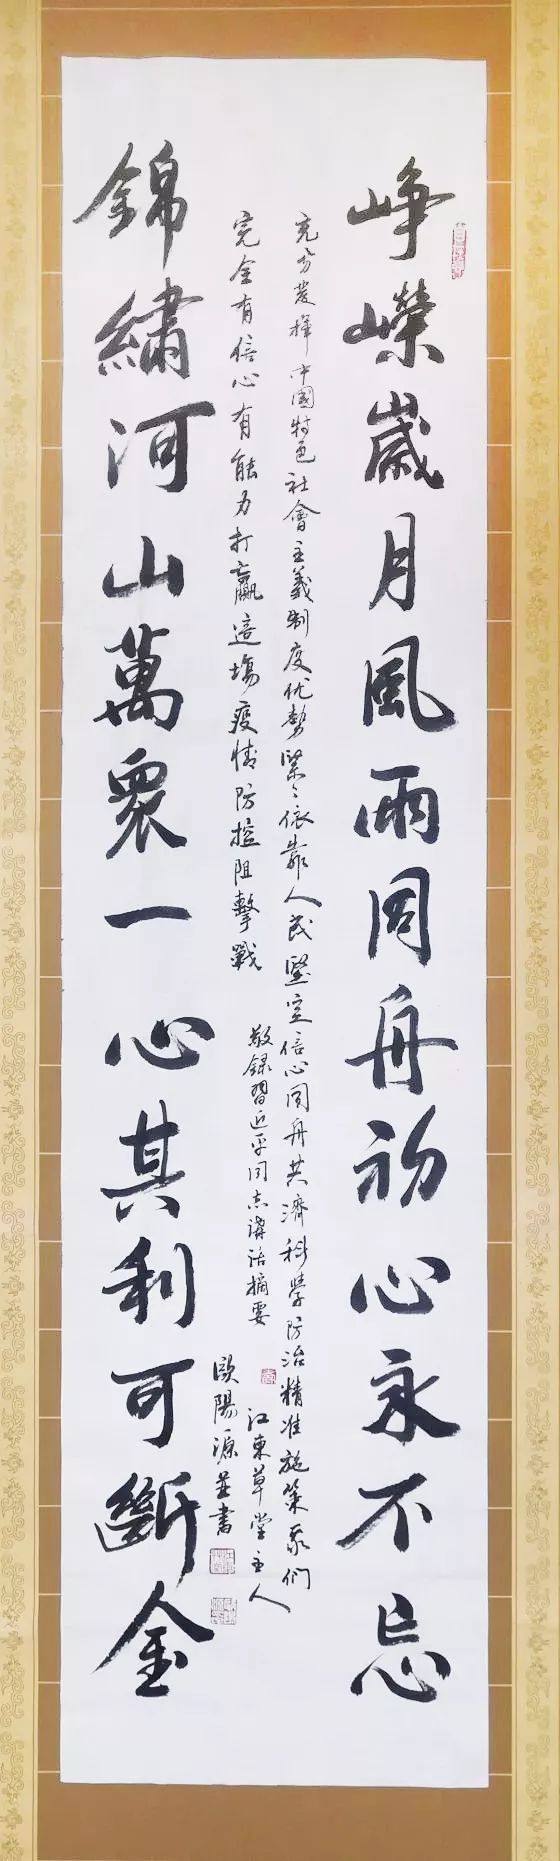 崢嶸歲月風雨同舟初心永不忘
充分發揮中國特色社會主義制度优勢緊〻依靠人民堅定信心同舟共濟科學防治精准施策我們
完全有信心有能力打贏這場疫情防控阻擊戰
敬錄習近平同志講話摘要
江東草堂主人
歐陽源並書
錦繡河山萬衆一心其利可斷金